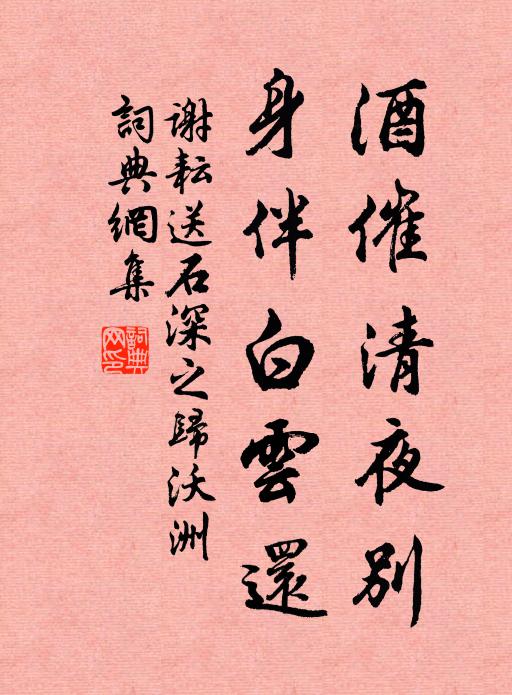 酒催清夜別
身伴白雲還
謝耘送石深之歸沃洲
詞典網集
詞典
网印